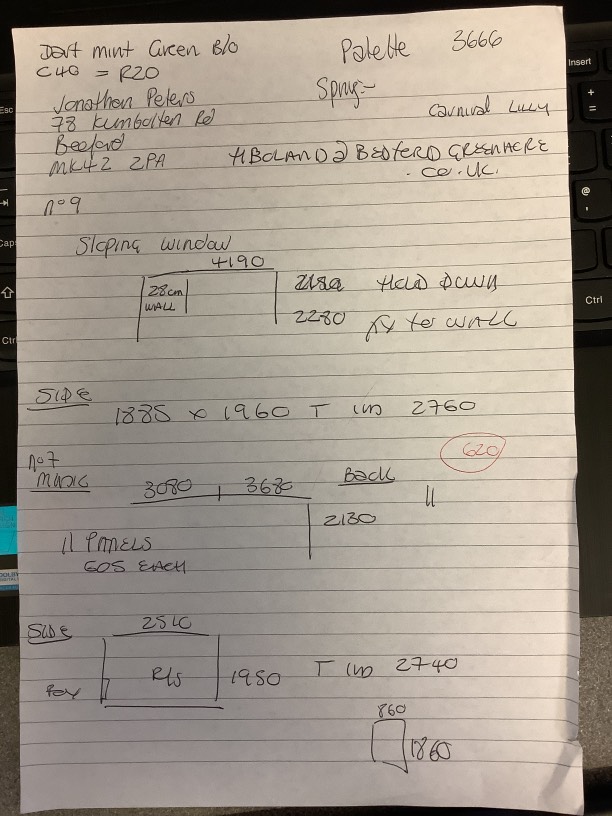 Dart mint Green B/O
C4G = R20
Palette 3666
Spray:-
Jonathan Peters
78 Kimbolten Rd
Bedford
MK42 2PA
Carnival Lilly
HBOLAND@BEDFORD GREENACRE
.co.uk.
no 9
Sloping window
4190
28cm
WALL
HOLD DOWN
2280 TO WALL
SIDE
1885 x 1960 T 2760
620
no 7
MUSIC
3080 3680
Back
11
2130
11 PANELS
605 EACH
SIDE
2510
R/S
1980 T 2740
860
1860
Insert
+
=
@
'
Ctrl
Esc
Cap
Ctr